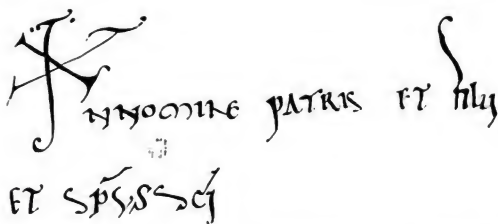 INNOMINE PATRIS ET filii
ET SP̄S,S SC̄I